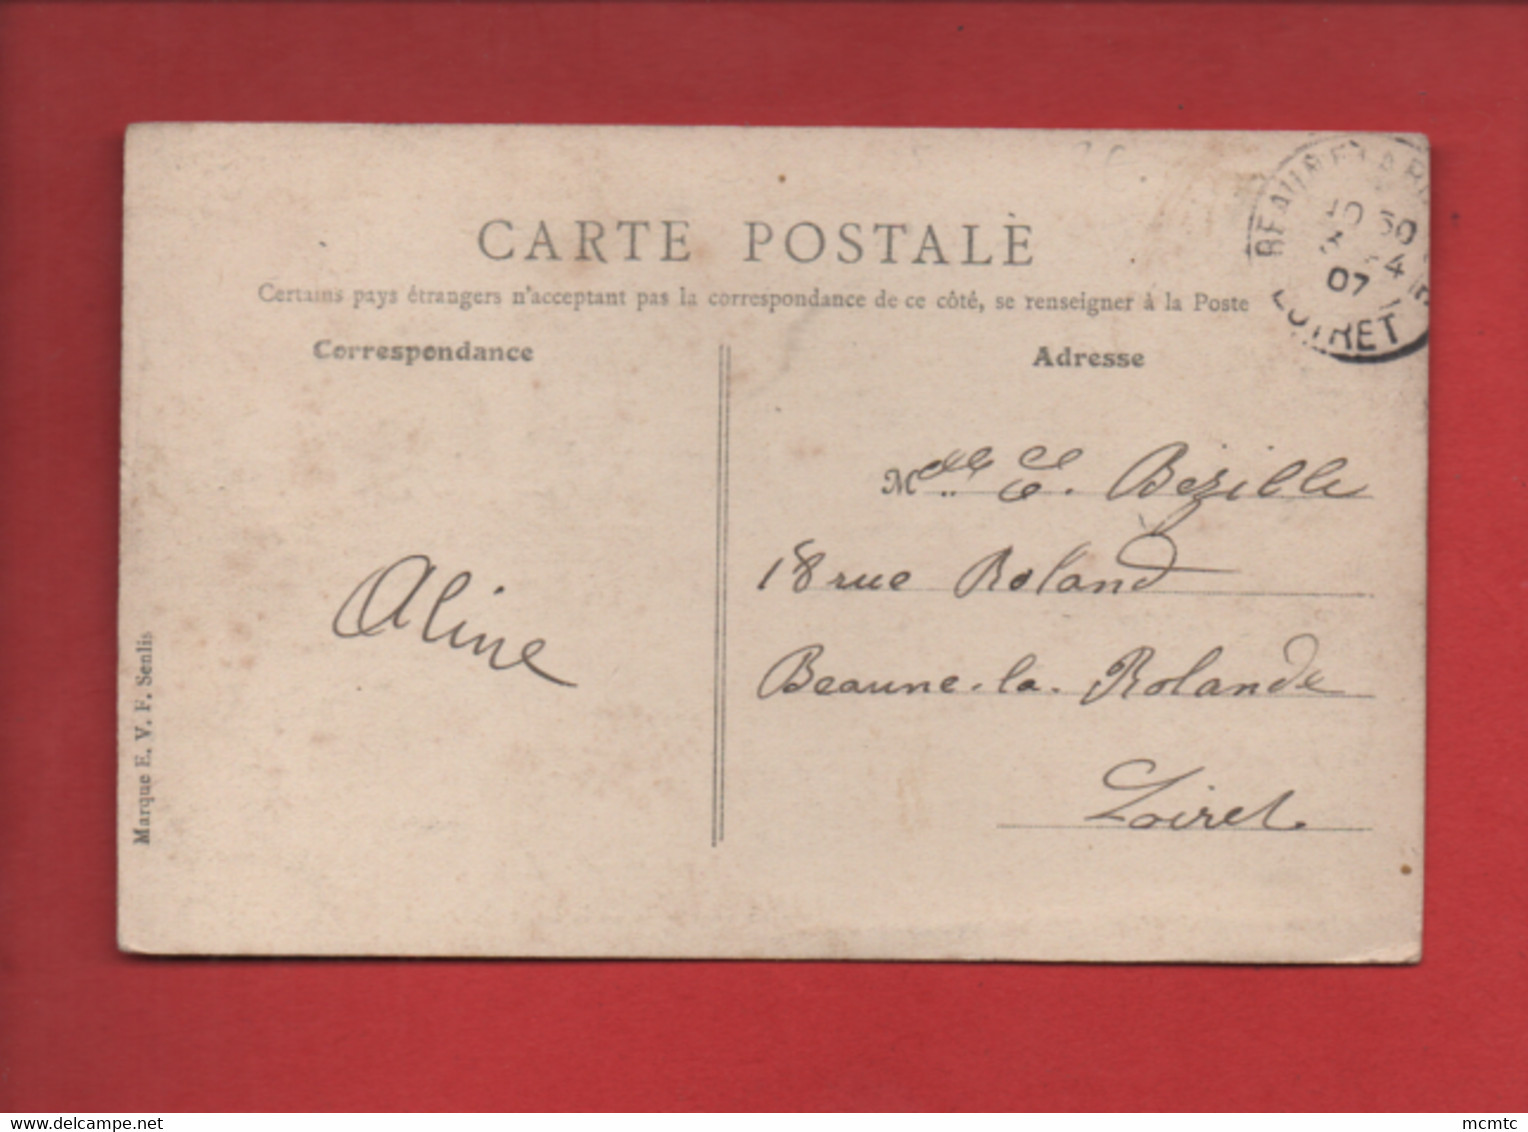 CARTE POSTALE
Certains pays étrangers n'acceptant pas la correspondance de ce côté, se renseigner à la Poste
Correspondance
Adresse
Aline
Melle E. Bezille
18 rue Roland
Beaune-la-Rolande
Loiret
Marque E. V. F. Senlis
07
LOIRET
delcampe.net
mcmtc